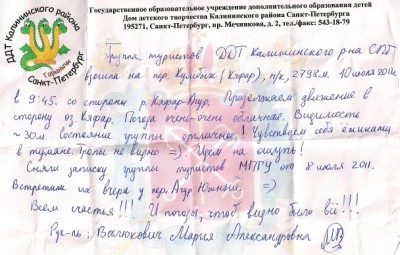 Государственное образовательное учреждение дополнительного образования детей
Дом детского творчества Калининского района Санкт-Петербурга
195271, Санкт-Петербург, пр. Мечникова, д. 2, тел./факс: 543-18-79
ДДТ Калининского района
Санкт-Петербург
Группа туристов ДДТ Калининского р-на СПб
взошла на пер. Кумбиж (Кяфар), н/к, 2798м. 10 июля 2011г
в 9:45. со стороны р. Кяфар-Агур. Продолжаем движение в
сторону оз. Кяфар. Погода очень-очень облачная. Видимость
~30м. Состояние группы отличное! Чувствуем себя ёжиками
в тумане. Тропы не видно =) Идём на ощупь!
Сняли записку группы туристов МПГУ от 8 июля 2011.
Встретили их вчера у пер. Агур Южный. =)
Всем счастья!!! И погоды, чтоб видно было всё!!!
Рук-ль: Мария Александровна